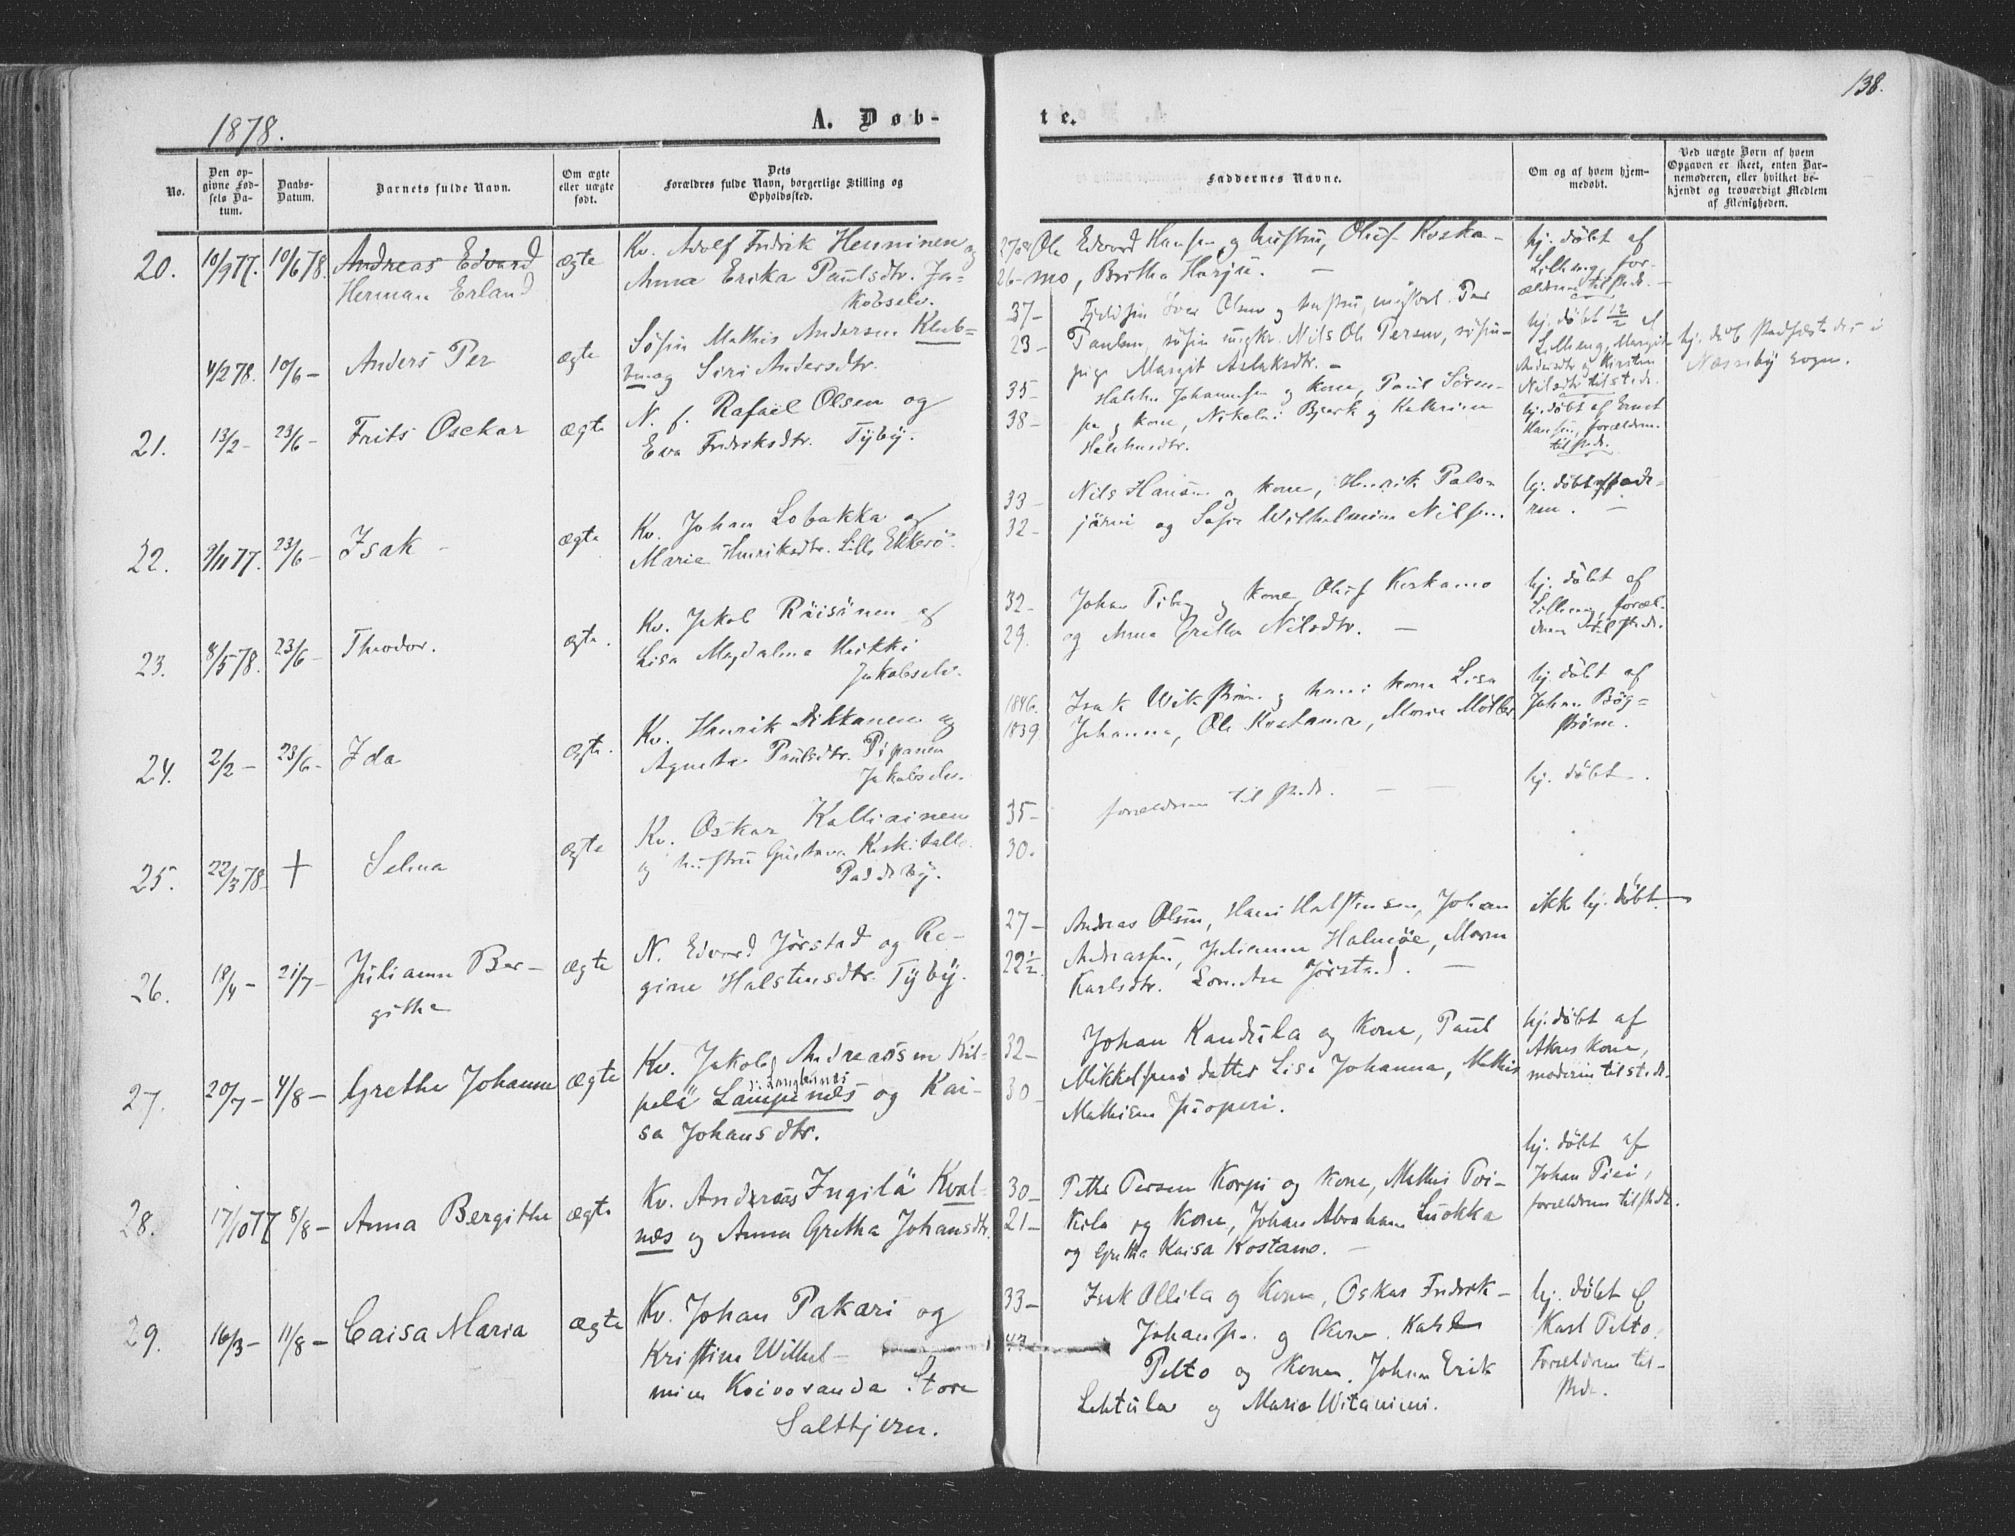 1878.
A. Døb-
te.
138.
No.
Den op-
givne Fød-
sels Da-
tum.
Daabs-
Datum.
Barnets fulde Navn.
Om ægte
eller uægte
født.
Dets
Forældres fulde Navn, borgerlige Stilling og
Opholdssted.
Faddernes Navne.
Om og af hvem hjem-
medøbt.
Ved uægte Børn af hvem
Opgaven er skeet, enten Bar-
nemoderen, eller hvilket be-
kjendt og troværdigt Medlem
af Menigheden.
20. 10/9 77. 10/6 78. Andreas Edvard
Herman Erland
ægte
Kv. Adolf Fredrik Henninen og
Anna Erika Paulsdtr. Ja-
kobselv.
Ole Edvard Hansen og hustru, Oluf Koska-
26- mo, Britha Harju. –
hj. døbt af
Lilleeng, for-
ældrene tilstede. –
4/2 78. 10/6 – Anders Per
ægte
Søfin Mathis Andersen Klub-
ben og Siri Andersdtr.
37-
23-
Olsen og hustru, ungkarl. Per
Paulsen, søfin ungkr. Nils Ole Persen, søfin-
pige Margit Aslaksdtr. –
hj. døbt 12/2 af
Lilleeng, Margit
Andersdtr og Kirsten
Nilsdtr tilstede.
hj. døb stadfæstedes i
Næsseby sogn.
21. 13/2 – 23/6 – Frits Osckar
ægte
N. f. Rafael Olsen og
Eva Fredriksdtr. Tybÿ.
35-
38-
Johannesen og kone, Paul Søren-
sen og kone, Nikolai Bjerk og Kathrine
hj. døbt af Ernst
Hansen, forældrene
tilstede.
22. 9/11 77. 23/6 – Isak –
ægte
Kv. Johan Lobakka og
Marie Henriksdtr. Lille Ekkerø.
33-
32-
Nils Hansen og kone, Henrik Palo-
järvi og Sofie Wilhelmine Nilsen.
hj. døbt af fade-
ren. –
23. 8/5 78. 23/6 – Theodor.
ægte.
Kv. Jakob Räisänen og
Lisa Magdalena Heikki
Jakobselv.
32-
29.
Johan Tiberg og kone Oluf Koskamo
og Anna Gretha Nilsdtr. –
hj. døbt af
Lilleeng, foræl-
drene tilstede.
24. 2/2 – 23/6 – Ida
ægte.
Kv. Henrik Pikkanen og
Agneta Paulsdtr. Pipanen
Jakobselv.
1846.
1839
Isak Wikstrøm og hans kone Lisa
Johanna, Ole Kostamo, Maria Møller
hj. døbt af
Johan Bög-
strøm.
25. 22/3 78. + Selma
ægte
Kv. Oskar Kalliainen
og hustru Gustava Keskitallo.
Paddeby.
35-
30.
forældrene tilstede. – –
hj. døbt –.
26. 18/4 – 21/7 – Julianne Ber-
githe
ægte
N. Edvard Jørstad og Re-
gine Halstensdtr. Tÿbÿ.
27-
22½.
Andreas Olsen, Hans Halstensen, Johan
Andreassen, Julianne Halmøe, Maren
Karlsdtr. Jørstad. –
ikke hj. døbt. –
27. 20/7 – 4/8 – Grethe Johanne
ægte
Kv. Jakob Andreassen Kil-
ɔ: Langbunes
pelä Lampenæs og Kai-
sa Johansdtr.
32-
30-
Johan Kandula og kone, Paul
Mikkelsens datter Lise Johanna, Mathis
Mathisen Juoperi.
hj. døbt af
Akers kone,
moderen tilstede.
28. 17/10 77 8/8 – Anna Bergithe
ægte
Kv. Andreas Ingilä Kval-
næs og Anna Gretha Johansdtr.
30-
21-
Petter Persen Korpi og kone, Mathis Poi-
kila og kone, Johan Abraham Luokka
og Gretha Kaisa Kostamo. –
hj. døbt af
Johan Piei,
forældrene tilstede.
29. 16/3 – 11/8 – Caisa Maria
ægte
Kv. Johan Pakari og
Kristine Wilhel-
mine Koivoranda Store
Saltfjeren.
33-
43-
Isak Ollila og kone, Oskar Fredrik –
Johansen og kone. Karl
Pelto og kone. Johan Erik
Lehtula og Maria Witaniemi.
hj. døbt af
Karl Pelto.
Forældrene til-
stede.